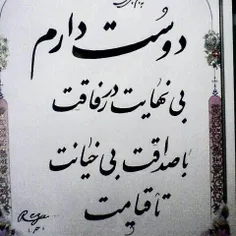 دوستت دارم
بی نهایت در رفاقت
با صداقت بی خیانت
تا قیامت
Reza